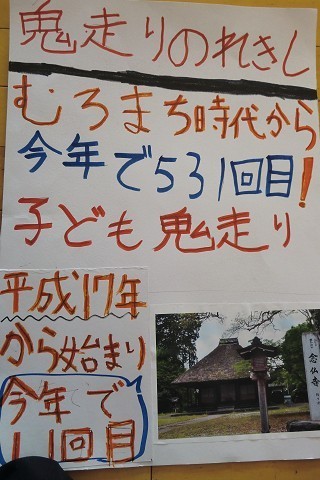 鬼走りのれきし
むろまち時代から
今年で531回目!
子ども鬼走り
平成17年
から始まり
今年で
11回目
念仏寺